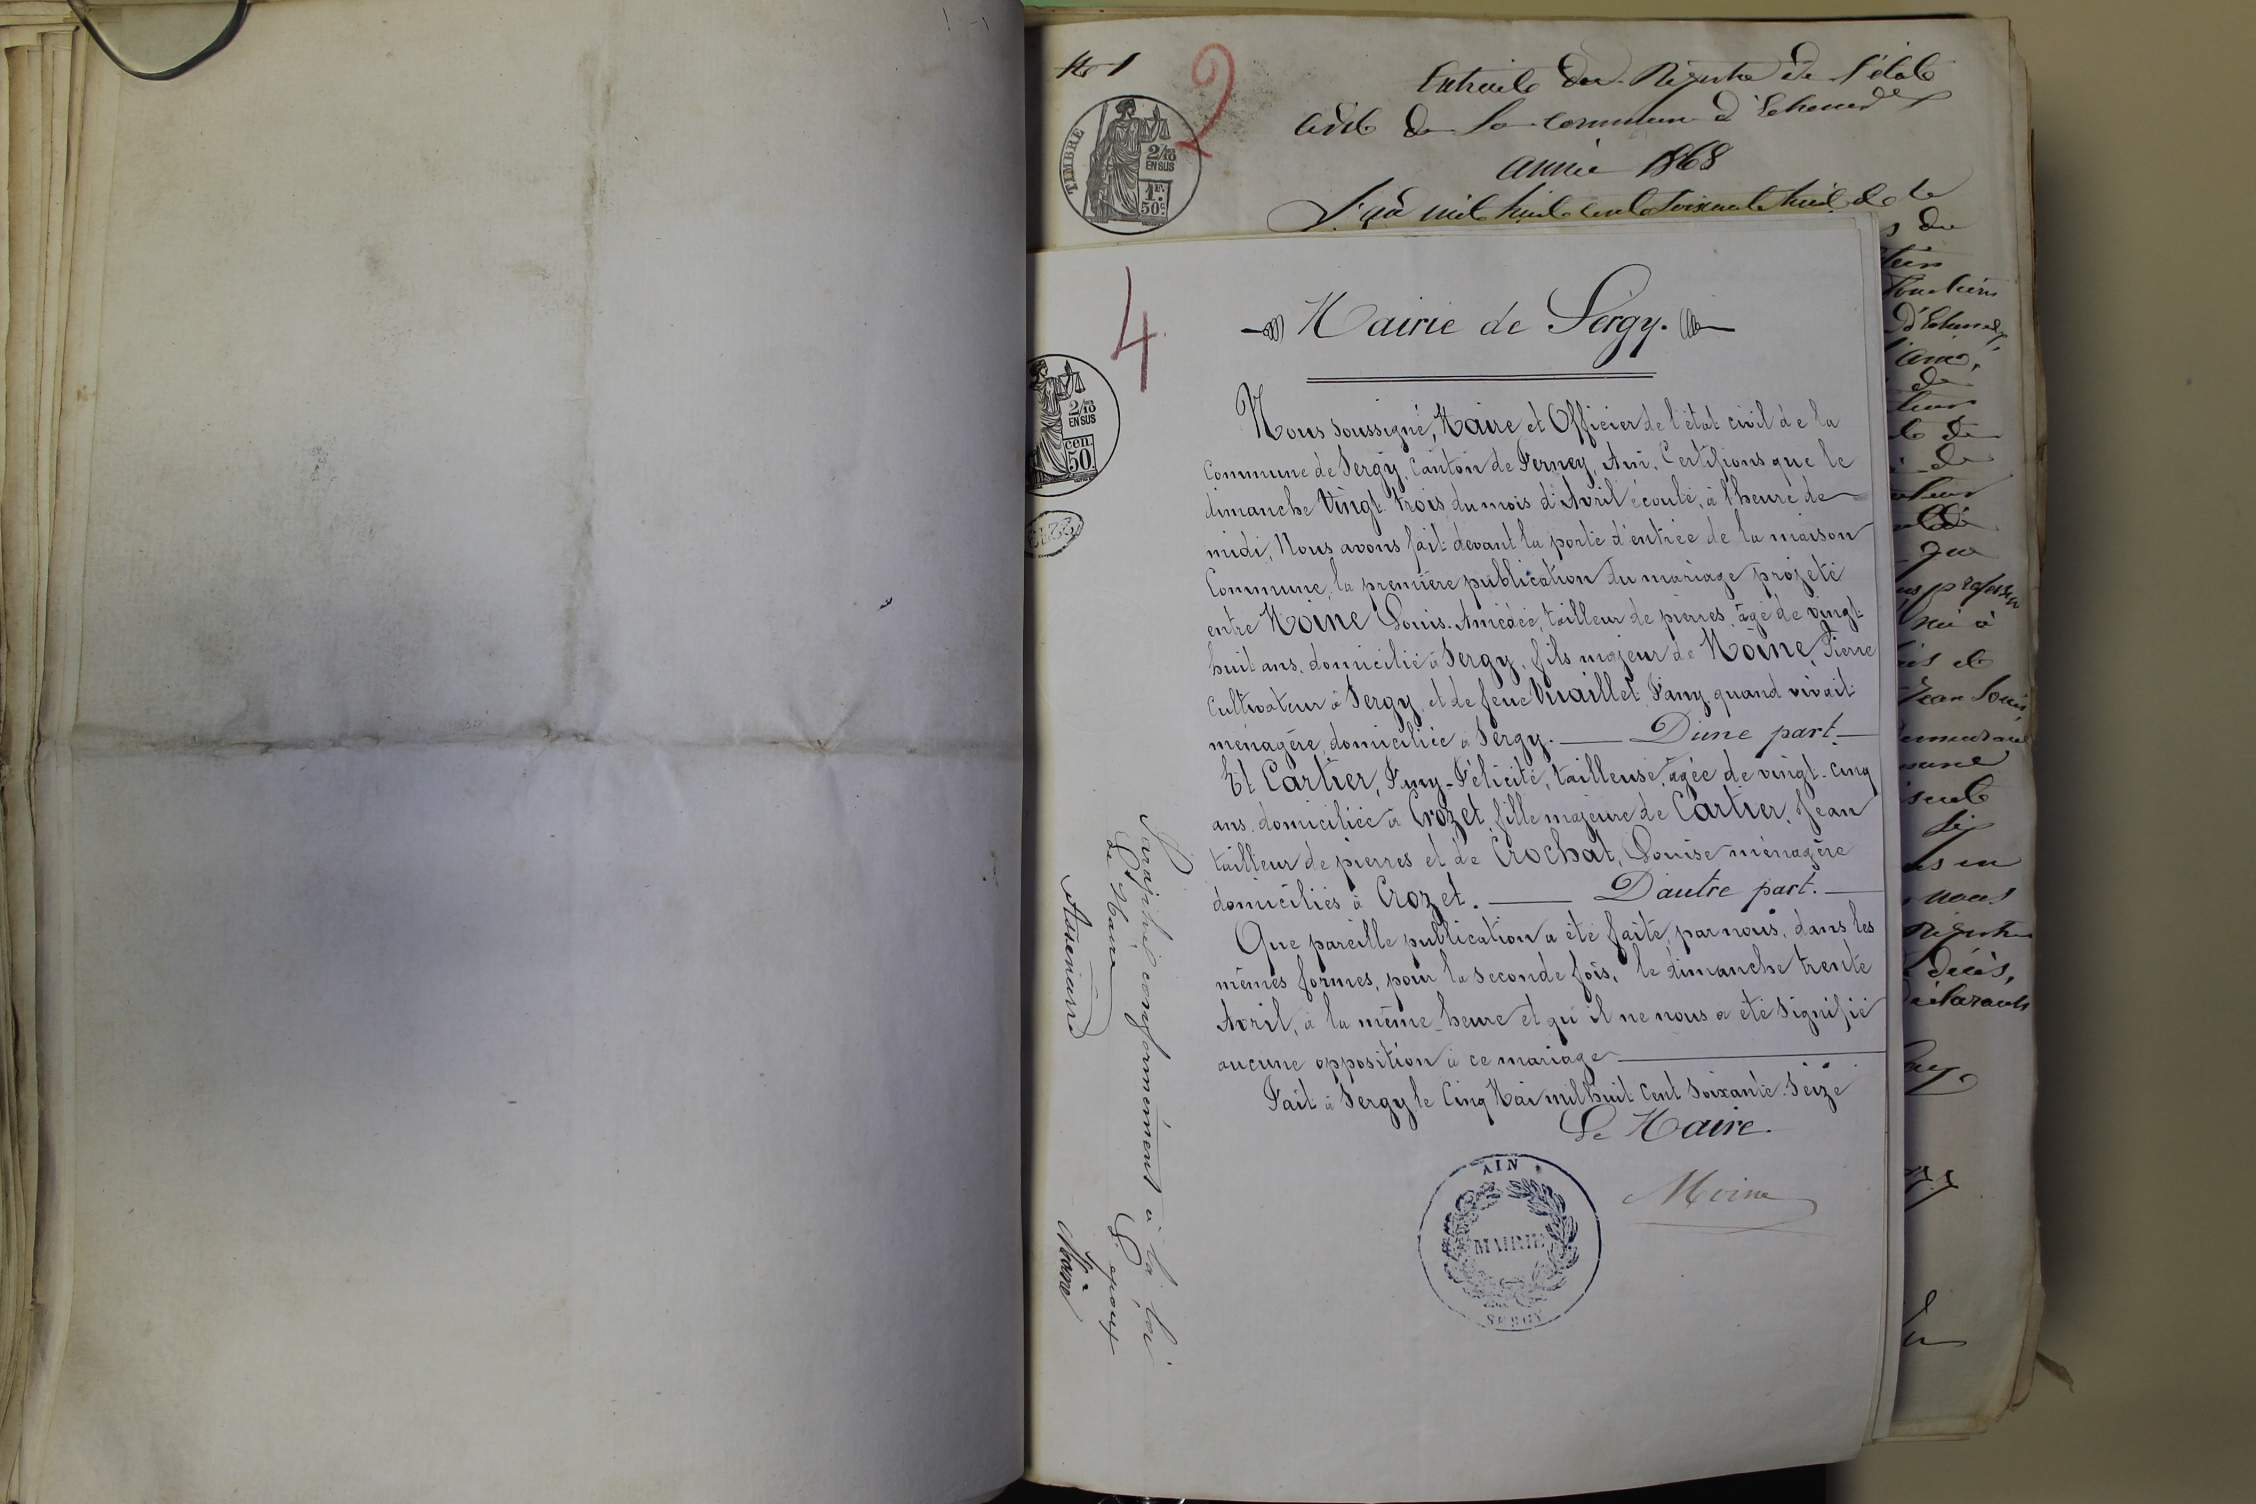 No 1
2
TIMBRE
2/10
EN SUS
1F.
50c
Extrait du Régistre de l'état
civil de la commune d'Echenevex
année 1868
L'an mil huit cent soixante huit et le
4
2/10
EN SUS
cen.
50
Mairie de Sergy.
Nous soussigné, Maire et Officier de l'état civil de la
Commune de Sergy, Canton de Ferney, Ain, Certifions que le
dimanche Vingt trois du mois d'Avril écoulé, à l'heure de
midi, Nous avons fait devant la porte d'entrée de la maison
Commune, la première publication du mariage projeté
entre Moine Louis-Amédée, tailleur de pierres, âgé de vingt
huit ans, domicilié à Sergy, fils majeur de Moine, Pierre
Cultivateur à Sergy, et de feue Vuaillet Fany quand vivait
ménagère, domiciliée à Sergy. — D'une part. —
Et Cartier, Fany-Félicité, tailleuse, âgée de vingt-cinq
ans, domiciliée à Crozet, fille majeure de Cartier, Jean
tailleur de pierres et de Crochat, Louise ménagère
domiciliés à Crozet. — D'autre part. —
Que pareille publication a été faite, par nous, dans les
mêmes formes, pour la seconde fois, le dimanche trente
Avril, à la même heure et qu'il ne nous a été signifié
aucune opposition à ce mariage —
Fait à Sergy le Cinq Mai mil huit cent soixante-seize
Le Maire.
Moine
AIN
MAIRIE
SERGY
Paraphé conformément à la loi
Le Maire
L'époux
Moine
du
de
que
né à
Jean Louis,
nous
décès,